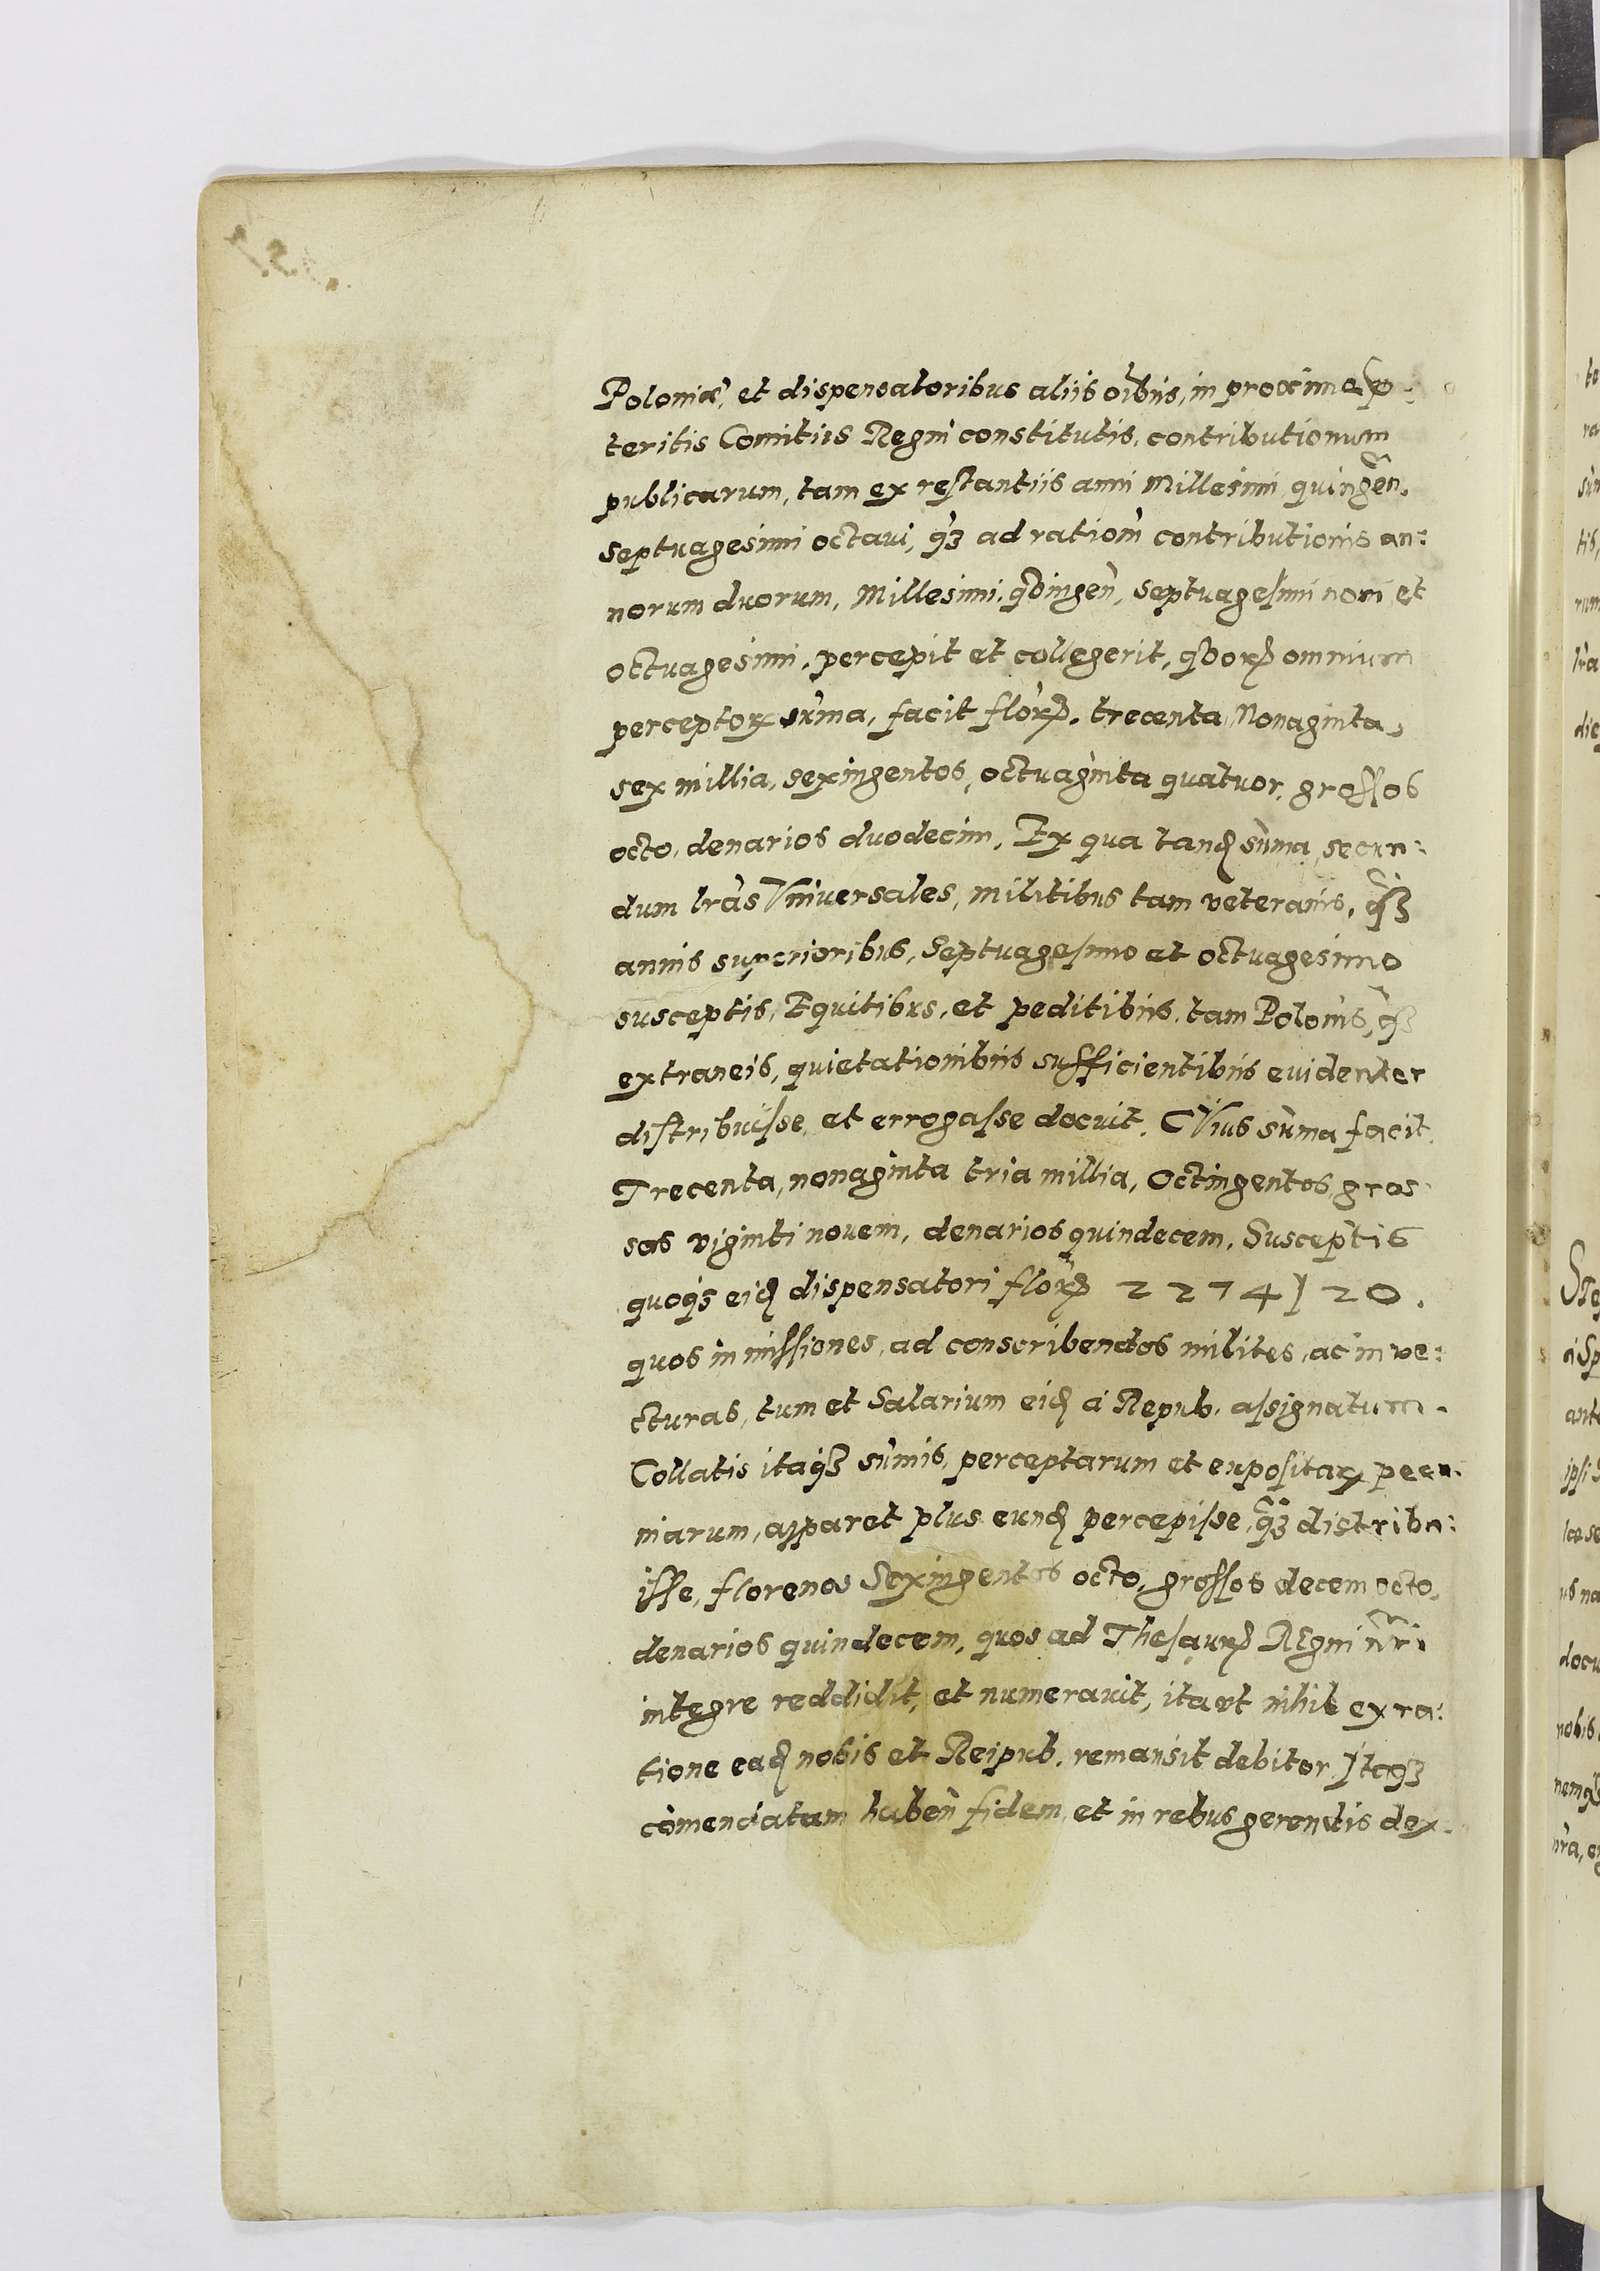 Poloniæ, et dispensatoribus aliis oĩbus, in proxime p̱
teritis Comitiis Regni constitutis, contributionum
publicarum, tam ex restantiis anni Millesimi quingen̄.
septuagesimi octaui, q̃ꝫ ad ration̄ contributionis an:
norum duorum, Millesimi, qvingen̄, septuagesimi noni et
octuagesimi, percepit et collegerit, qvorꝝ omnium
perceptorꝝ sum̄a, facit florꝝ. trecenta Nonaginta,
sex millia, sexingentos, octuaginta quatuor, grossos
octo, denarios duodecim. Ex qua tanꝗ sum̄a, secun:
dum lrãs Vniuersales, militibus tam veteranis, q̃ꝫ
annis superioribus, Septuagesimo et octuagesimo
susceptis, Equitibus, et peditibus, tam Polonis, q̃ꝫ
extraneis, quietationibus sufficientibus euidenter
distribuisse, et errogasse docuit. CVius sum̄a facit
Trecenta, nonaginta tria millia, Octingentos, gros
sos viginti nouem, denarios quindecem, Susceptis
quoqꝫ eiꝗ dispensatori florꝝ 2274 | 20.
quos in missiones, ad conscribendos milites, ac in ve:
cturas, tum et Salarium eiꝗ á Repub. assignatum.
Collatis itaqꝫ sum̄is, perceptarum et expositarꝝ pecu.
niarum, apparet plus eunꝗ percepisse, q̃ꝫ distribu:
isse, florenos Sexingentos octo, grossos decem octo,
denarios quindecem, quos ad Thesaurꝝ REgni nr̃i
integre reddidit, et numerauit, ita vt nihil ex ra:
tione eaꝗ nobis et Reipub. remansit debitor. Itaqꝫ
com̄endatam huben̄ fidem, et in rebus gerendis dex.